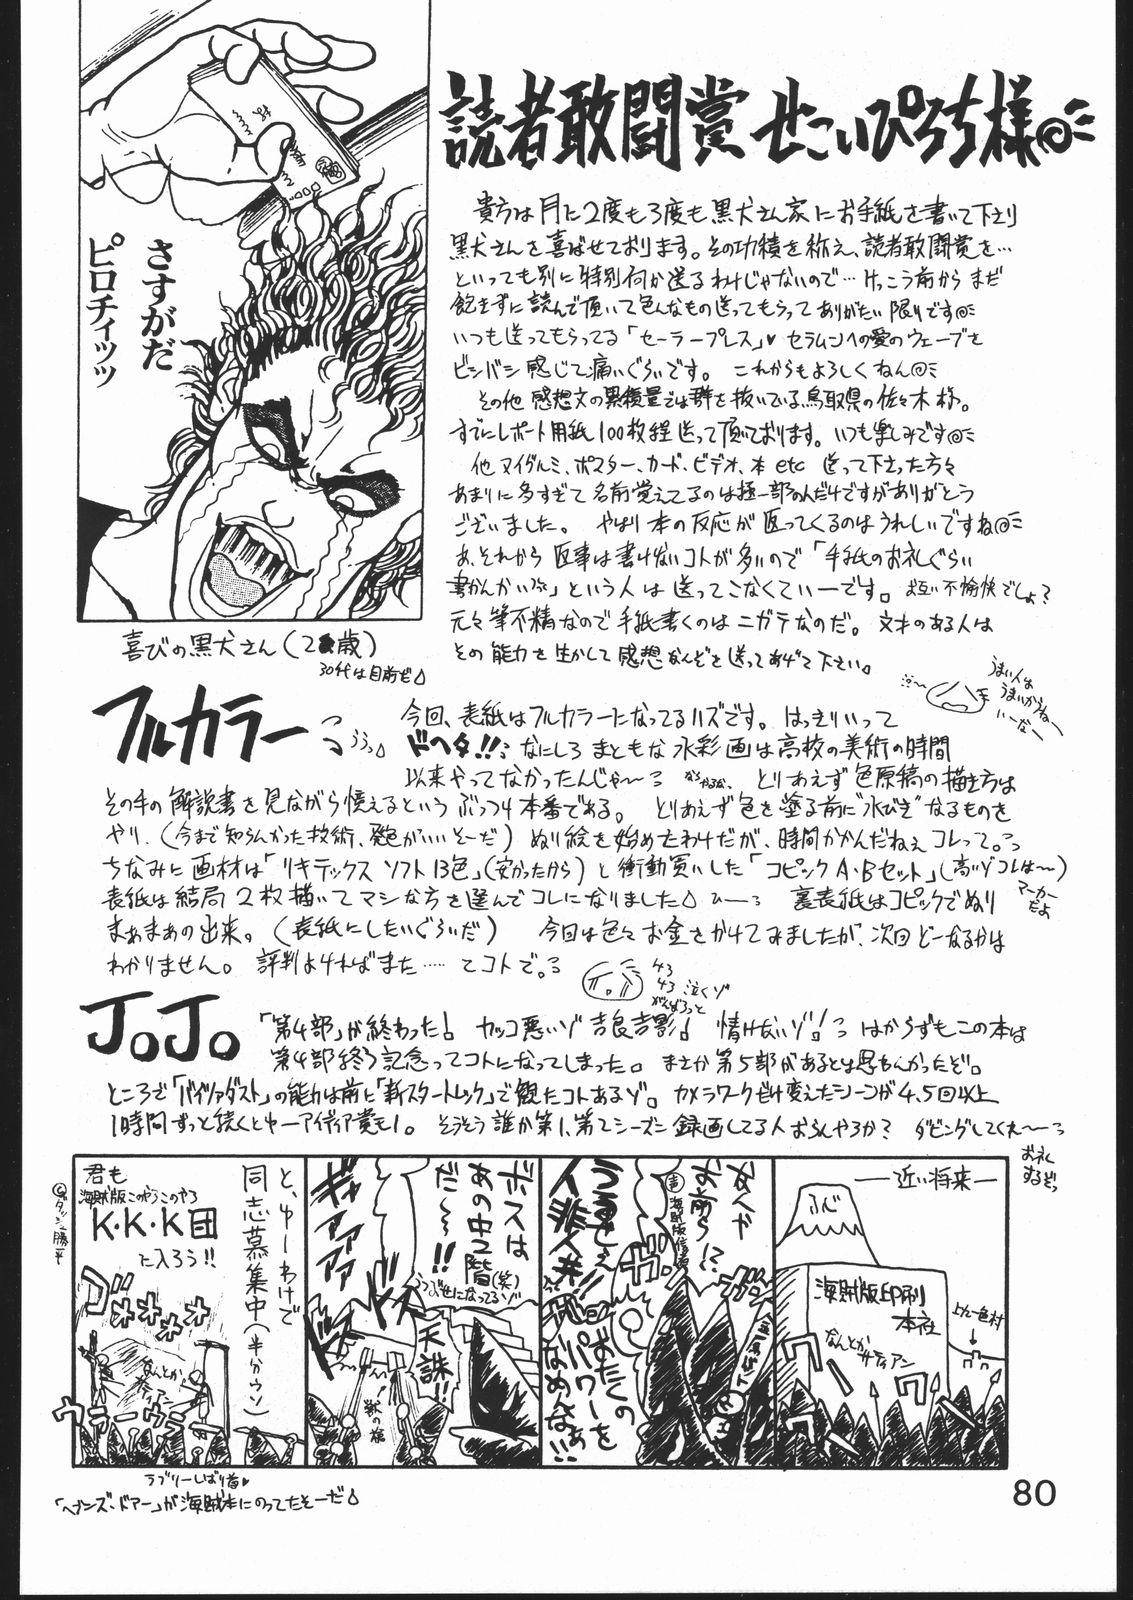 読者敢闘賞 せこいぴろち様
さすがだ
ピロチィッッ
喜びの黒犬さん(2 歳)
30代は目前だ
貴方は月に2度も3度も黒犬さん家にお手紙を書いて下さり
黒犬さんを喜ばせております。その功積を称え、読者敢闘賞を…
といっても別に特別何か送るわけじゃないので…けっこう前からまだ
飽きずに読んで頂いて色んなもの送ってもらってありがたい限りです
いつも送ってもらってる「セーラープレス」♥ セラムンへの愛のウェーブを
ビシバシ感じて痛いぐらいです。 これからもよろしくねん
その他 感想文の累積量では群を抜いている鳥取県の佐々木様。
すでにレポート用紙100枚程送って頂いております。いつも楽しみです
他 ヌイグルミ、ポスター、カード、ビデオ、本 etc 送って下さった方々
あまりに多すぎて名前覚えてるのは極一部のんだけですがありがとう
ございました。 やはり本の反応が返ってくるのはうれしいですね
あ、それから返事は書けないコトが多いので「手紙のお礼ぐらい
書かんかい」という人は送ってこなくていーです。お互い不愉快でしょ?
元々筆不精なので手紙書くのはニガテなのだ。文才のある人は
その能力を生かして感想なんぞを送ってあげて下さい。
うまい人は
うまいからねー
いーなー
フルカラー
今回、表紙はフルカラーになってるハズです。はっきりいって
ドヘタ!! なにしろまともな水彩画は高校の美術の時間
以来やってなかったんじゃ〜 とりあえず色原稿の描き方は
その手の解説書を見ながら憶えるというぶっつけ本番である。 とりあえず色を塗る前に"水びき"なるものを
やり、(今まで知らんかった技術、発色がいいそーだ) ぬり絵を始めたわけだが、時間かかんだねぇコレって。
ちなみに画材は「リキテックス ソフト13色」(安かったから)と衝動買いした「コピックA・Bセット」(高いゾコレは〜)
マーカーだよ
表紙は結局2枚描いてマシな方を選んでコレになりました ひーっ 裏表紙はコピックでぬり
まぁまぁの出来。(表紙にしたいぐらいだ) 今回は色々お金をかけてみましたが、次回どーなるかは
わかりません。評判よければまた……てコトで。
泣くゾ
JoJo
「第4部」が終わった! カッコ悪いゾ 吉良吉影! 情けないゾ! はからずもこの本は
第4部終了記念ってコトになってしまった。まさか第5部があるとは思わんかったぞ。
ところで「バイツァダスト」の能力は前に「新スタートレック」で観たコトあるゾ。カメラワークだけ変えたシーンが4、5回以上
1時間ずっと続くとゆーアイディア賞もの。そうそう誰か第1、第2シーズン録画してる人おらんやろか? ダビングしてくれ〜
お礼するぞっ
―近い将来―
ふじ
海賊版印刷
本社
上九一色村
なんとか
サティアン
ワー
なんや
お前ら!?
海賊版信者
うるせぇ
人非人共!!
おたくの
パワーを
なめんなぁ!!
ボスは
あの中2階(笑)
だ〜!!
ギャアアアア
天誅!!
獣の槍
と、ゆーわけで
同志募集中(半分ウソ)
君も
海賊版このやろこのやろ
K・K・K団
に入ろう!!
なんとか
サティアン
ウラーウラー
ラブリーしばり首♥
「ヘブンズ・ドアー」が海賊本にのってたそーだ
80